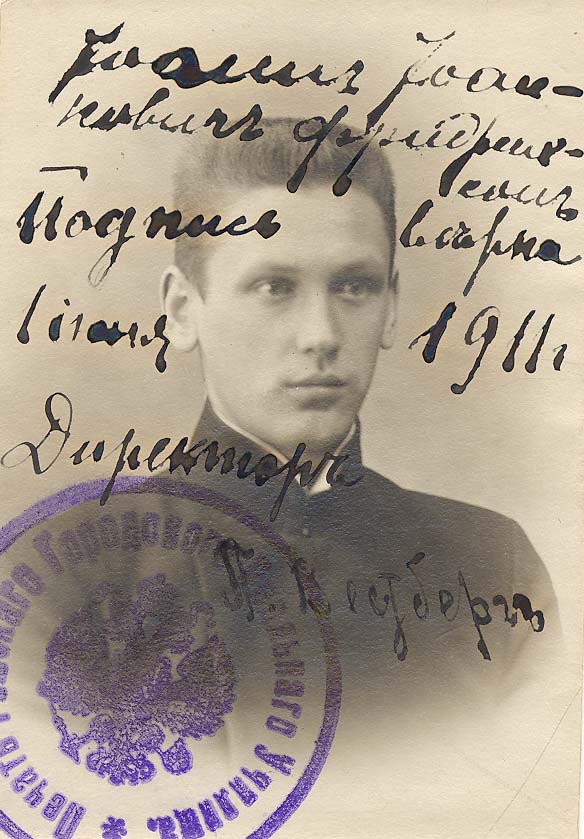 Іоаннъ Іоан-
новичъ Фридрих-
сонъ
Подпись вѣрна
1 іюня 1911 г
Директоръ
Печать Городского Училища